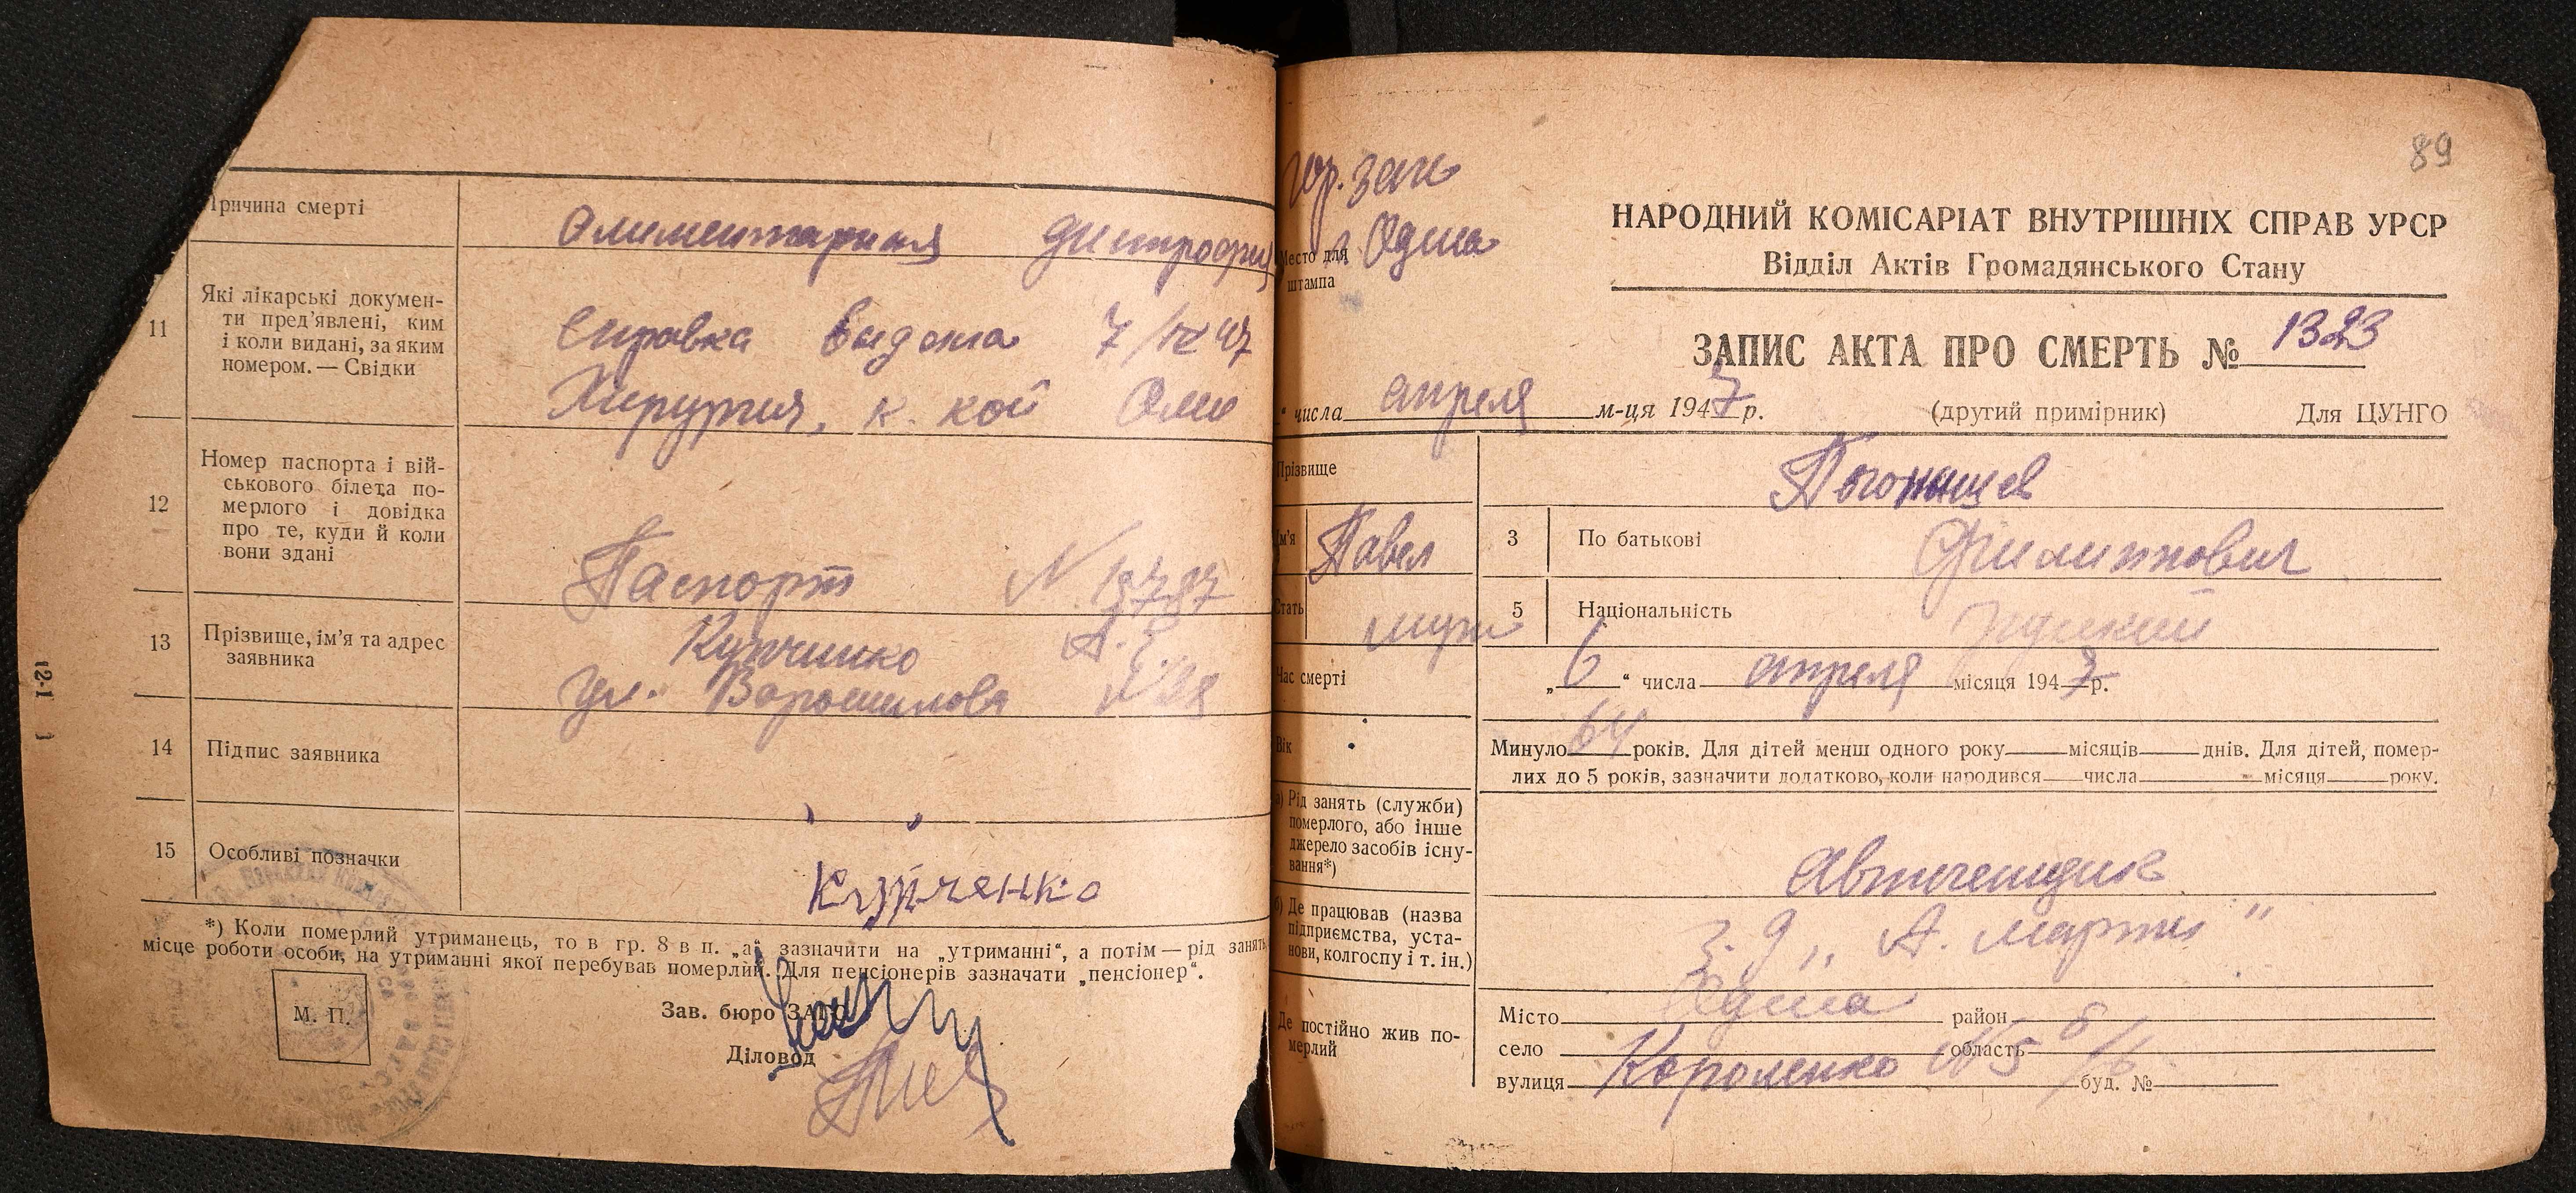 Причина смерті
Алиментарная дистрофия
11
Які лікарські докумен-
ти пред’явлені, ким
і коли видані, за яким
номером. — Свідки
Справка выдана 7/IV 47
Хирургич. к. кой
12
Номер паспорта і вій-
ськового білета по-
мерлого і довідка
про те, куди й коли
вони здані
Паспорт N
13
Прізвище, ім’я та адрес
заявника
Купченко А.
ул. Ворошилова N 38
14
Підпис заявника
15
Особливі позначки
Купченко
*) Коли померлий утриманець, то в гр. 8 в п. „а“ зазначити на „утриманні“, а потім — рід занять
місце роботи особи, на утриманні якої перебував померлий. Для пенсіонерів зазначати „пенсіонер“.
М. П.
Зав. бюро ЗАГС
Діловод
12-1
89
гор. загс
г. Одесса
Место для
штампа
НАРОДНИЙ КОМІСАРІАТ ВНУТРІШНІХ СПРАВ УРСР
Відділ Актів Громадянського Стану
ЗАПИС АКТА ПРО СМЕРТЬ № 1323
“ числа апреля м-ця 1947 р. (другий примірник) Для ЦУНГО
Прізвище
Ім’я Павел 3 По батькові Филиппович
Стать муж 5 Національність
Час смерті „6“ числа апреля місяця 1947 р.
Вік
Минуло 64 років. Для дітей менш одного року місяців днів. Для дітей, помер-
лих до 5 років, зазначити додатково, коли народився числа місяця року.
а) Рід занять (служби)
померлого, або інше
джерело засобів існу-
вання*)
б) Де працював (назва
підприємства, уста-
нови, колгоспу і т. ін.)
з-д „А. Марти“
Де постійно жив по-
мерлий
Місто Одесса район
село область
вулиця Короленко N 5 буд. №